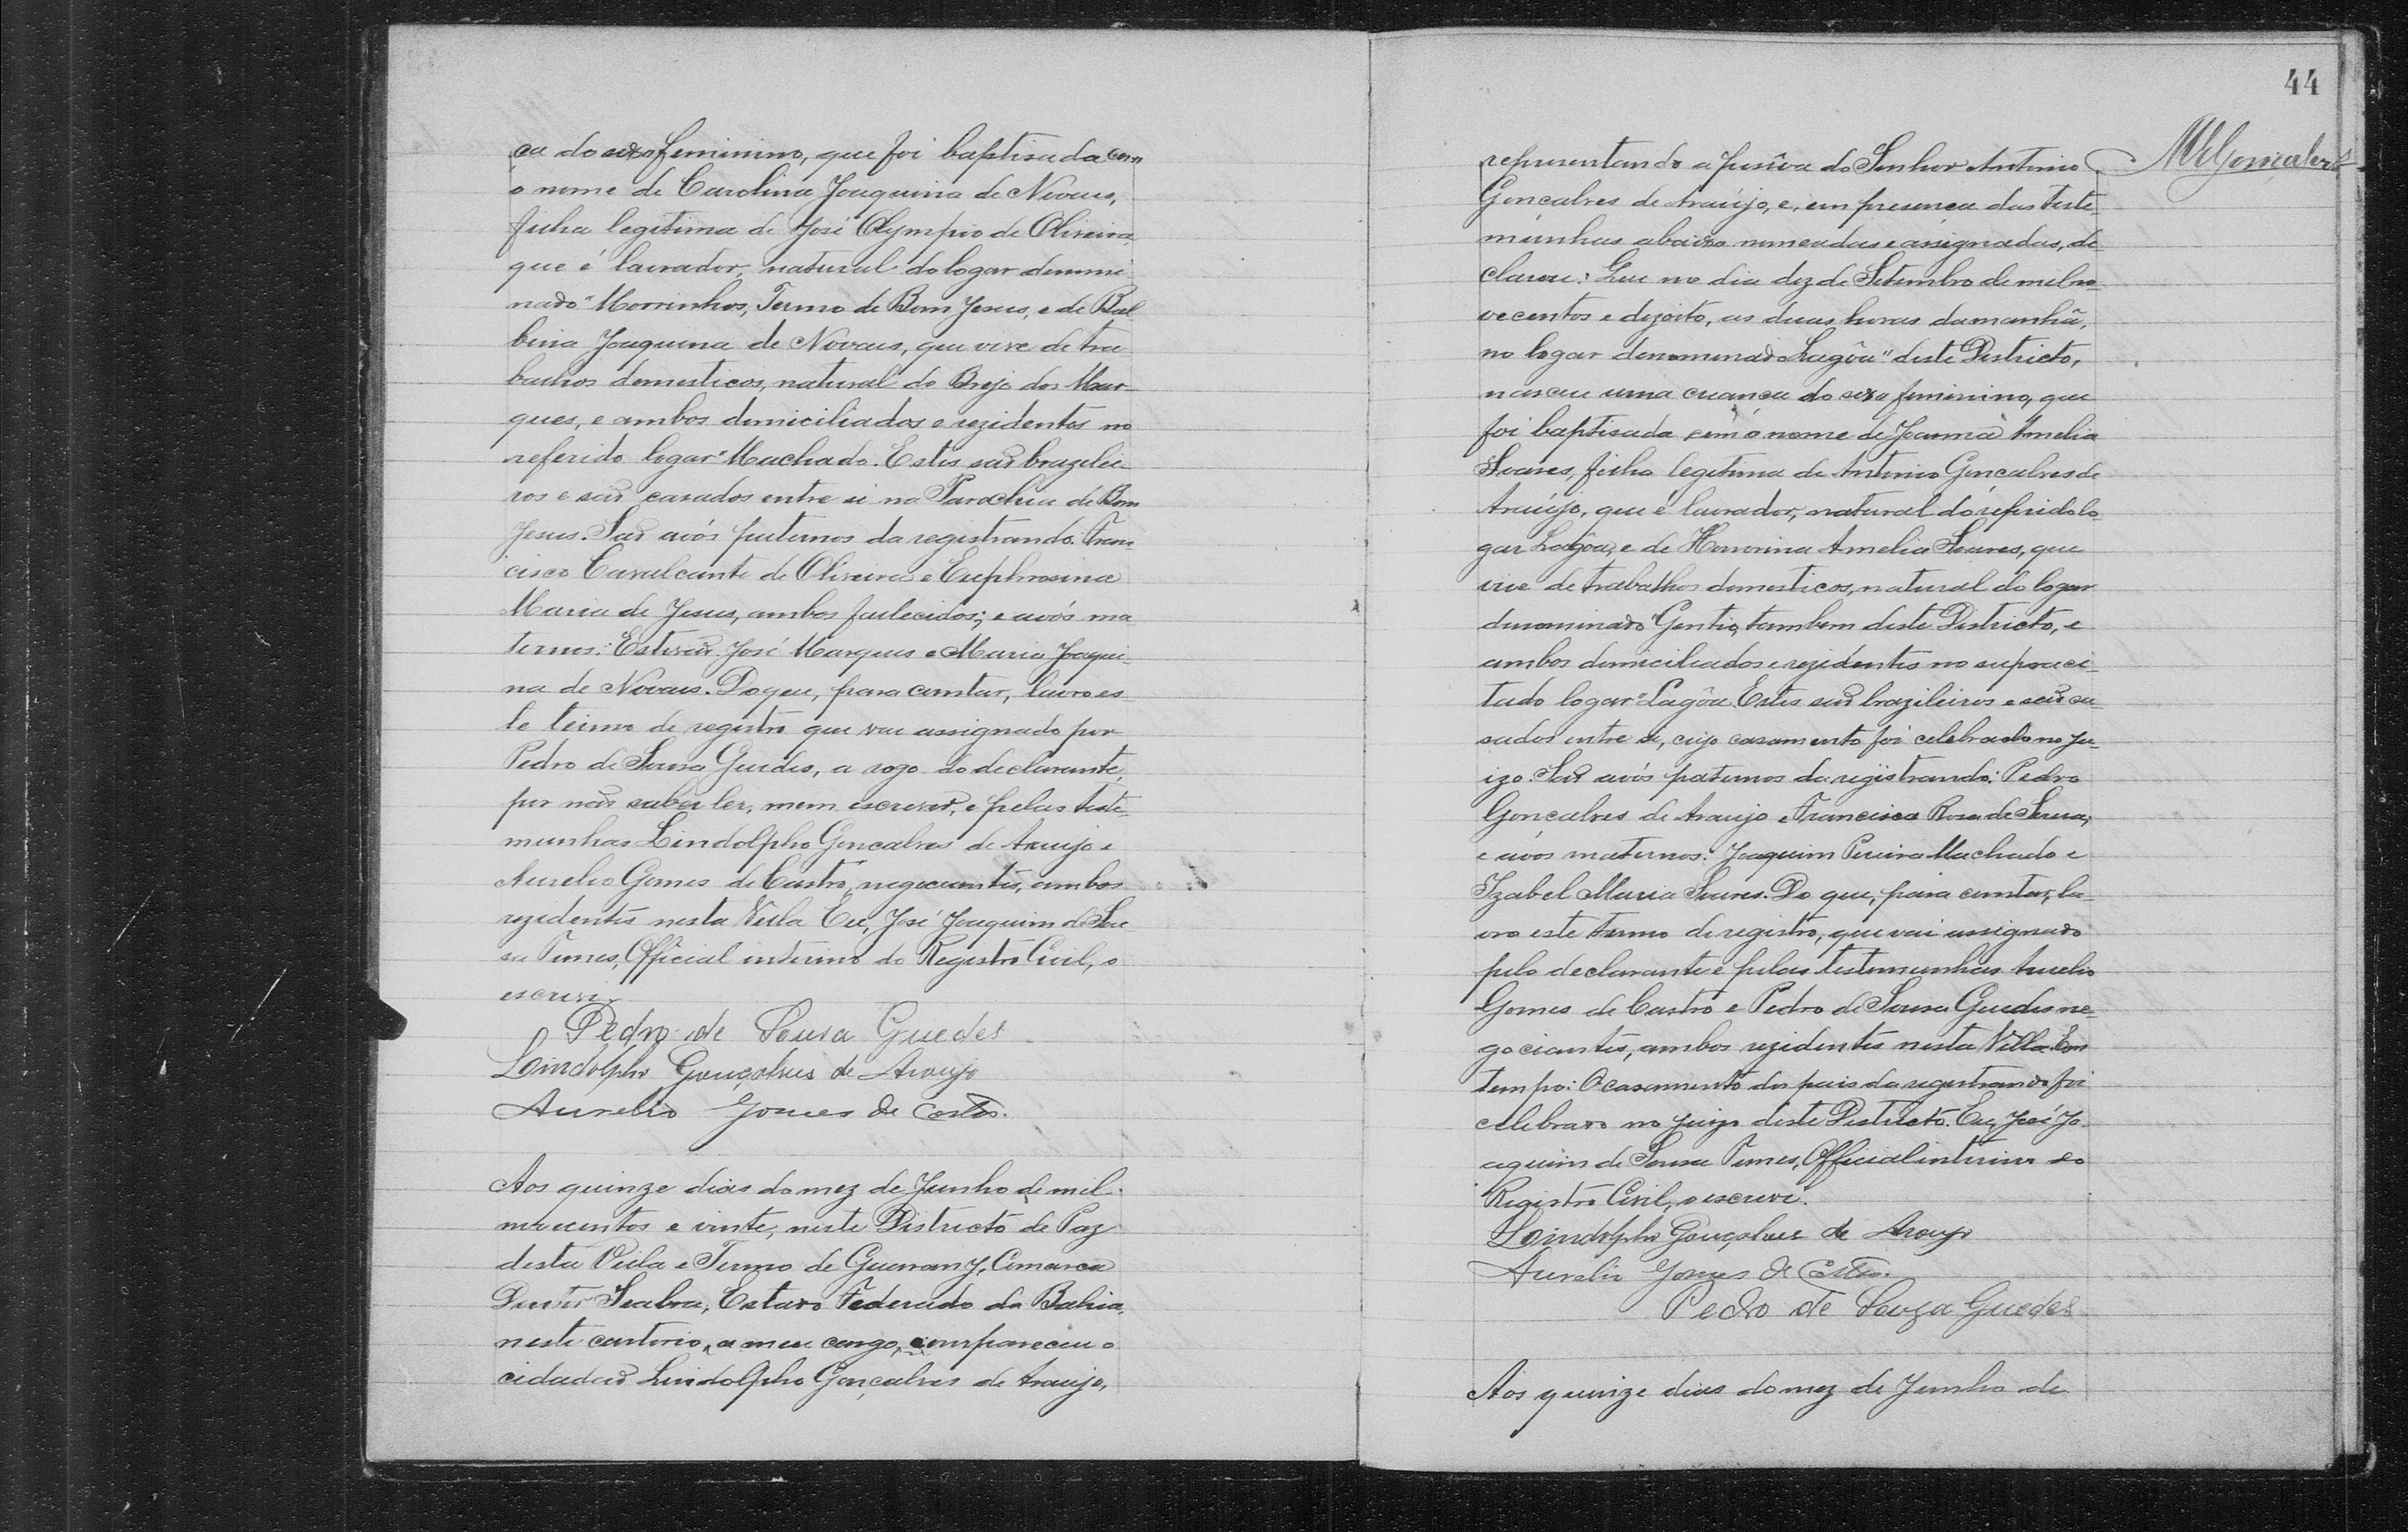 ça do sexo feminino, que foi baptisada com
o nome de Carolina Joaquina de Novaes,
filha legitima de José Olympio de Oliveira,
que é lavrador, natural do logar denomi
nado "Morrinhos, Termo de Bom Jesus, e de Bal
bina Joaquina de Novaes, que vive de tra
balhos domesticos, natural do Brejo dos Mar-
ques, e ambos domiciliados e rezidentes no
referido logar "Machado. Estes são brazilei
ros e são casados entre si na Parochia de Bom
Jesus. São avós paternos da registrando: Fran
cisco Cavalcante de Oliveira e Euphrosina
Maria de Jesus, ambos fallecidos; e avós ma
ternos: Estevão José Marques e Maria Joaqui-
na de Novaes. Do que, para constar, lavro es-
te termo de registro que vae assignado por
Pedro de Sousa Guedes, a rogo do declarante,
por não saber ler, nem escrever, e pelas teste-
munhas Lindolpho Gonçalves de Araujo e
Aurelio Gomes de Castro, negociantes, ambos
rezidentes nesta Villa. Eu, José Joaquim de Sou
sa Official interino do Registro Civil, o
escrevi.
Pedro de Sousa Guedes
Lindolpho Gonçalves de Araujo
Aurelio Gomes de Castro.
Aos quinze dias do mez de Junho de mil
novecentos e vinte, neste Districto de Paz
desta Villa e Termo de Guarany, Comarca
Doutor Seabra, Estado Federado da Bahia,
neste cartorio, a meu cargo, compareceu o
cidadão Lindolpho Gonçalves de Araujo,
44
MVGonçalves
representando a pessôa do Senhor Antonio
Gonçalves de Araújo, e, em presença das teste-
munhas abaixo nomeadas e assignadas, de
clarou: Que no dia dez de Setembro de mil no-
vecentos e dezoito, as duas horas da manhã,
no logar denominado Lagôa" deste Districto,
nasceu uma creança do sexo feminino, que
foi baptisada com o nome de Joanna Amelia
Soares, filha legitima de Antonio Gonçalves de
Araújo, que é lavrador, natural do referido lo-
gar Lagôa, e de Honorina Amelia Soares, que
vive de trabalhos domesticos, natural do logar
denominado "Gentio, tambem deste Districto, e
ambos domiciliados e rezidentes no supraci-
tado logar "Lagôa. Estes são brazileiros e são ca-
sados entre si, cujo casamento foi celebrado no Ju-
izo. São avós paternos da registrando: Pedro
Gonçalves de Araujo e Francisca Rosa de Sousa,
e avós maternos: Joaquim Pereira Machado e
Izabel Maria Soares. Do que, para constar, la-
vro este termo de registro, que vai assignado
pelo declarante e pelas testemunhas Aurelio
Gomes de Castro e Pedro de Sousa Guedes ne-
gociantes, ambos rezidentes nesta Villa. Em
tempo: O casamento dos pais da registrando foi
celebrado no juizo deste Districto. Eu, José Jo-
aquim de Sousa Official interino do
Registro Civil, o escrevi.
Lindolpho Gonçalves de Araujo
Aurelio Gomes de Castro.
Pedro de Souza Guedes
Aos quinze dias do mez de Junho de